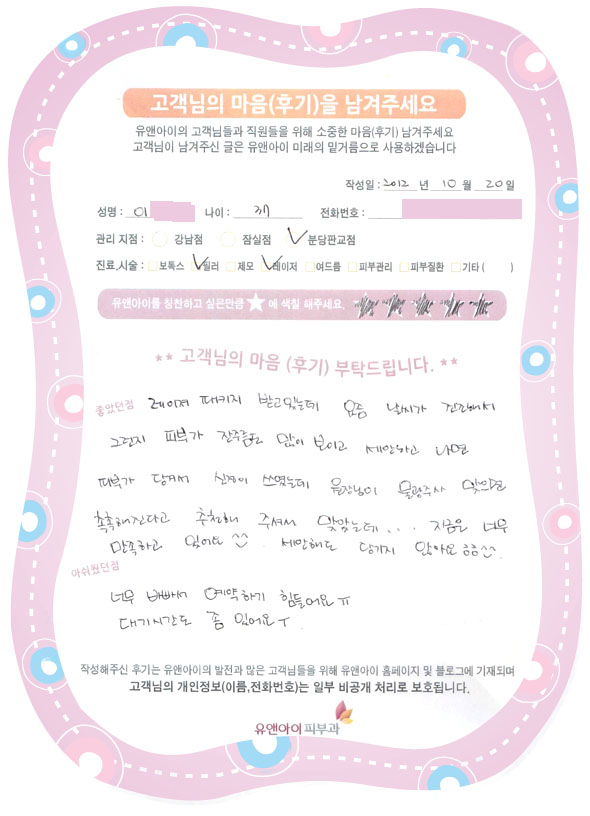 고객님의 마음(후기)을 남겨주세요
유앤아이의 고객님들과 직원들을 위해 소중한 마음(후기) 남겨주세요
고객님이 남겨주신 글은 유앤아이 미래의 밑거름으로 사용하겠습니다
작성일 : 2012 년 10 월 20 일
성명 : 이 나이 : 전화번호 :
관리 지점 : 강남점 잠실점 분당판교점
진료,시술 : 보톡스 필러 제모 레이저 여드름 피부관리 피부질환 기타 ( )
유앤아이를 칭찬하고 싶은만큼 ★ 에 색칠 해주세요.
** 고객님의 마음 (후기) 부탁드립니다. **
좋았던점 레이져 패키지 받고있는데 요즘 날씨가 건조해서
그런지 피부가 잔주름도 많이 보이고 세안하고 나면
피부가 당겨서 신경이 쓰였는데 원장님이 물광주사 맞으면
촉촉해진다고 추천해 주셔서 맞았는데... 지금은 너무
만족하고 있어요 ^^. 세안해도 당기지 않아요 ㅎㅎ^^.
아쉬웠던점
너무 바빠서 예약하기 힘들어요 ㅠ
대기시간도 좀 있어요ㅜ.
작성해주신 후기는 유앤아이의 발전과 많은 고객님들을 위해 유앤아이 홈페이지 및 블로그에 기재되며
고객님의 개인정보(이름,전화번호)는 일부 비공개 처리로 보호됩니다.
유앤아이 피부과